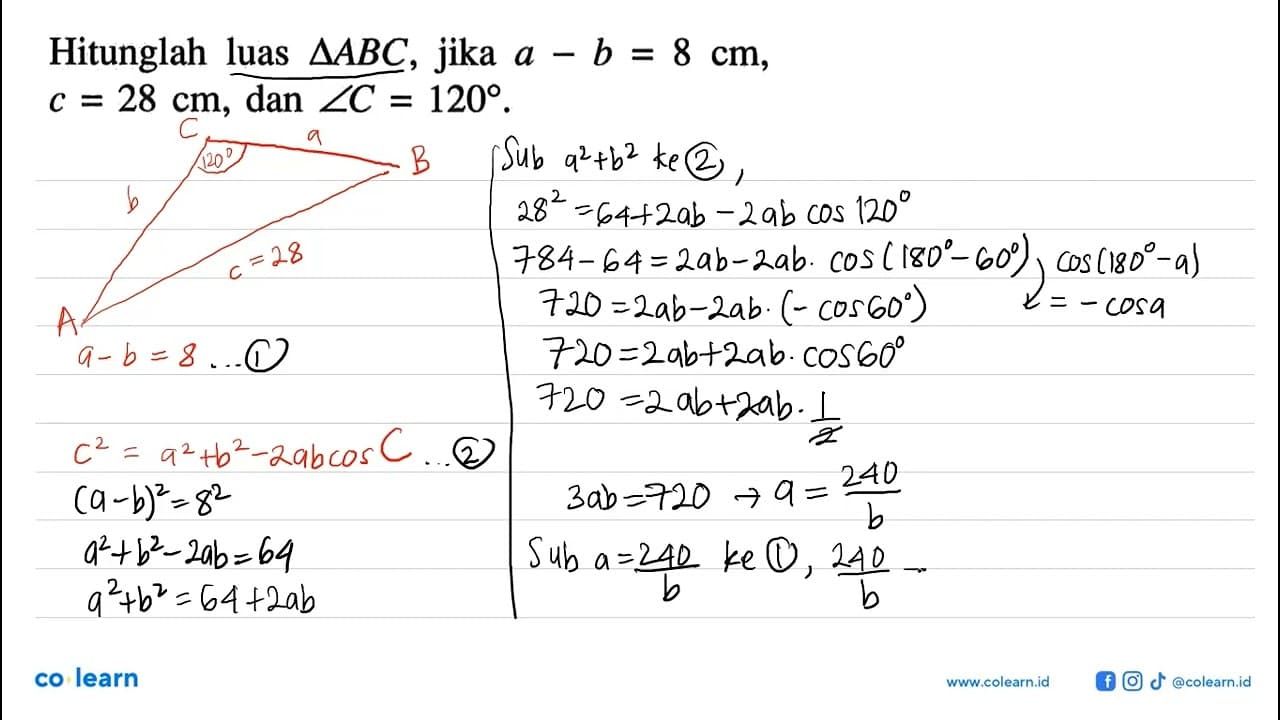 Hitunglah luas ΔABC, jika a − b = 8 cm,
c = 28 cm, dan ∠C = 120°.
C
a
120°
B
b
c = 28
A
a − b = 8 ...①
c² = a² + b² − 2ab cos C ...②
(a − b)² = 8²
a² + b² − 2ab = 64
a² + b² = 64 + 2ab
Sub a² + b² ke ②,
28² = 64 + 2ab − 2ab cos 120°
784 − 64 = 2ab − 2ab · cos(180° − 60°)
cos(180° − a)
= − cos a
720 = 2ab − 2ab · (− cos 60°)
720 = 2ab + 2ab · cos 60°
720 = 2ab + 2ab · 1/2
3ab = 720 → a = 240/b
Sub a = 240/b ke ①, 240/b −
co learn
www.colearn.id
@colearn.id